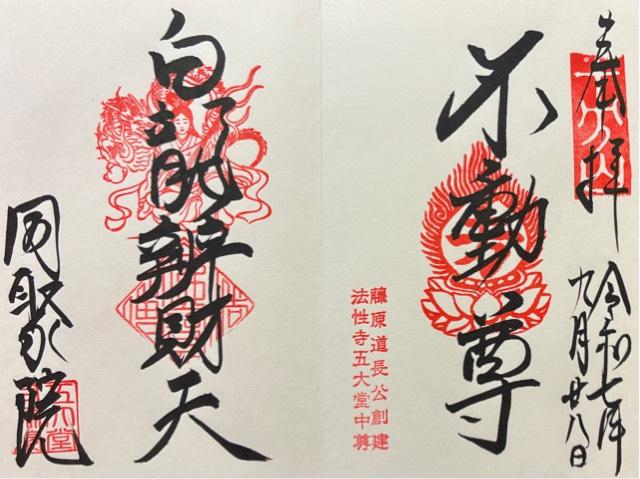 奉拝
令和七年
九月廿八日
不動尊
藤原道長公創建
法性寺五大堂中尊
白龍辨財天
同聚院